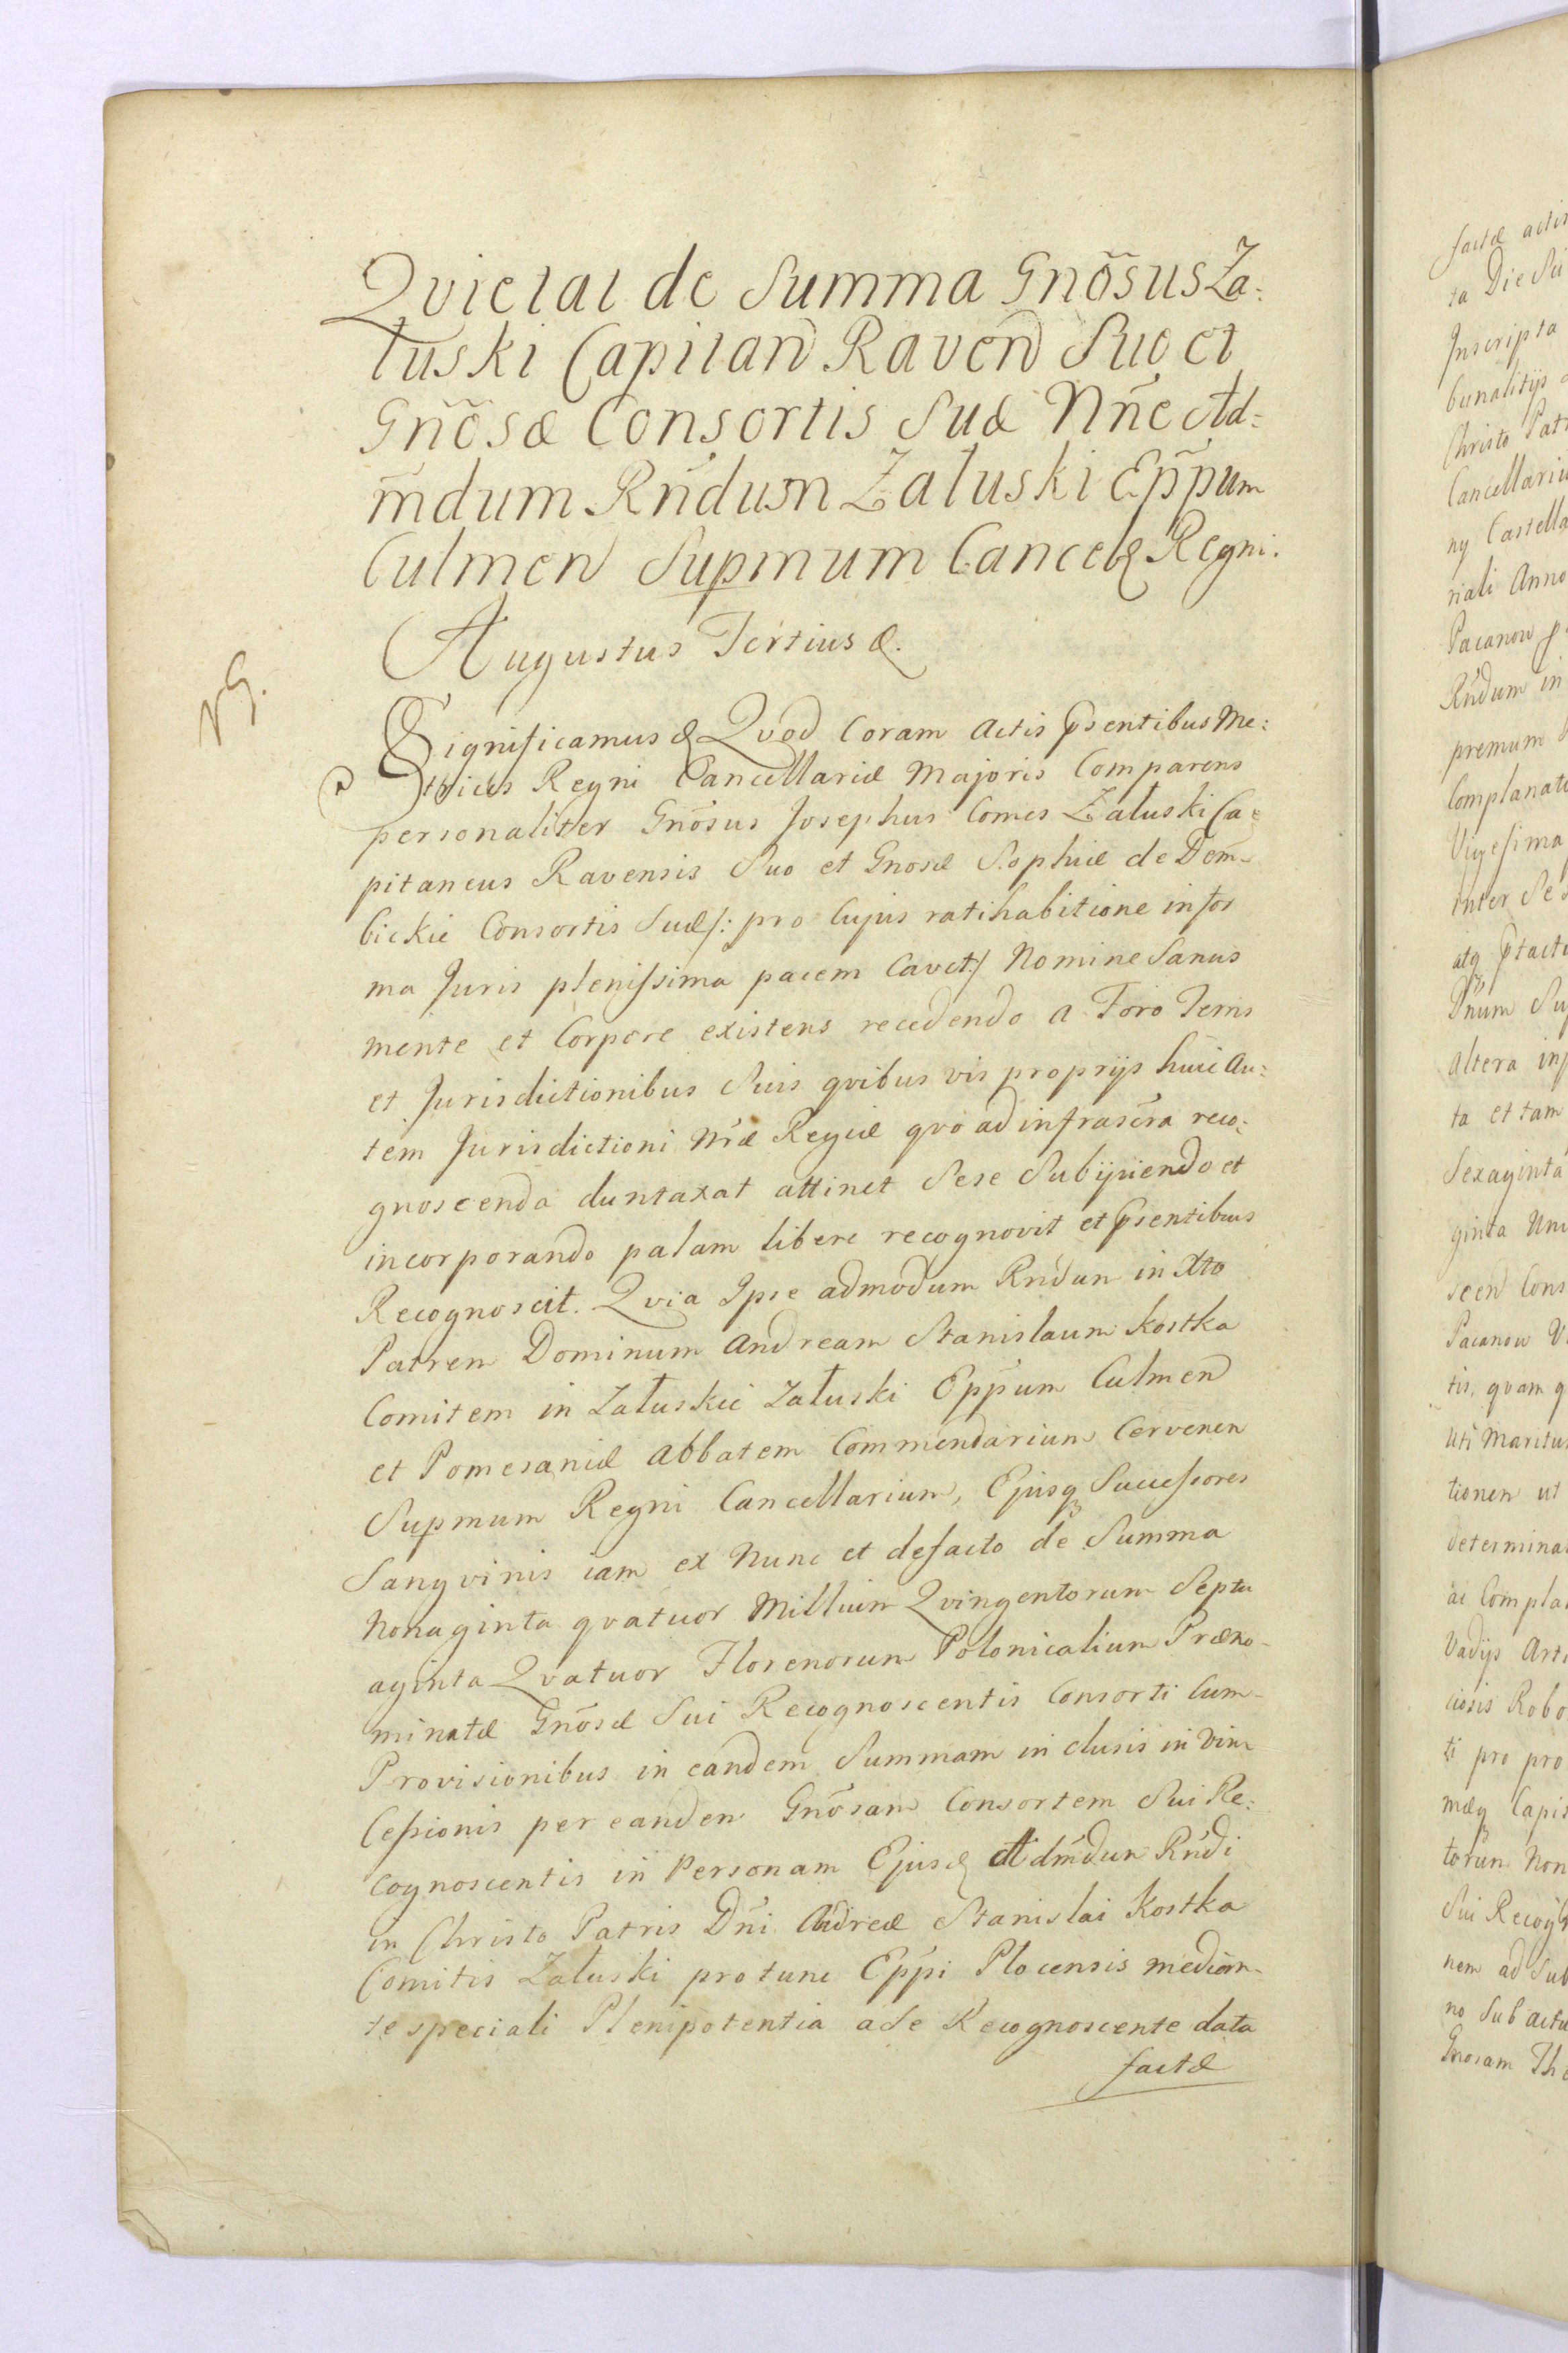 Qvietat de Summa Gnõsus Za:
łuski Capitan̄ Raven̄ Suo et
Gnõsæ Consortis Suæ Nñe Ad:
m̃dum Rñdum Załuski Epp̃um
Culmen̄ Supmum Cancel& Regni.
Augustus Tertius &.
NG.
Significamus & Qvod Coram Actis Pṡentibus Me:
trices Regni Cancellariæ Majoris Comparens
personaliter Gnõsus Josephus Comes Załuski Ca=
pitaneus Ravensis Suo et Gnosæ Sophiæ de Dem̄-
bickie Consortis Suæ /: pro Cujus ratihabitione in for
ma Juris plenissima pacem Cavet :/ Nomine Sanus
mente et Corpore existens recedendo a Foro Terris
et Jurisdictionibus Suis qvibus vis proprijs huic Au:
tem Jurisdictioni Nræ Regiæ qvo ad infrascra reco:
gnoscenda duntaxat attinet Sese Subijciendo et
incorporando palam libere recognovit et Pṡentibus
Recognoscit. Qvia Ipse admodum Rñdum in Xto
Patrem Dominum Andream Stanislaum Kostka
Comitem in Załuskie Załuski Epp̃um Culmen̄
et Pomesaniæ Abbatem Commendarium Cervenen
Supmum Regni Cancellarium, Ejusq; Successores
Sangvinis iam ex Nunc et defacto de Summa
Nonaginta qvatuor Millium Qvingentorum Septu
aginta Qvatuor Florenorum Polonicalium Præno-
minatæ Gnõsæ Sui Recognoscentis Consorti Cum-
Provisionibus in eandem Summam in clusis in Vim
Cessionis per eandem Gnõsam Consortem Sui Re:
cognoscentis in Personam Ejusd Adm̃dum Rñdi
in Christo Patris Dñi Andreæ Stanislai Kostka
Comitis Załuski protunc Epp̃i Plocensis median-
te speciali Plenipotentia a Se Recognoscente data
factæ
factæ actis
ta Die
Inscripta
bunalitijs
Christo Pat
Cancellariu
ny Castella
riali Anno
Pacanow
Rñdum in
premum
Complanat
Vigesima
inter Se
atq;
Dñum Su
altera in
ta et tam
Sexaginta
ginta
scen̄ Cons
Pacanow
tis, qvam q
Uti Maritus
tionem ut
determina
ac Compla
Vadijs Art
Robo
ti pro pro
Capis
torum Non
Sui Recogn
nem ad Sub
no Sub actu
Gnosam Th